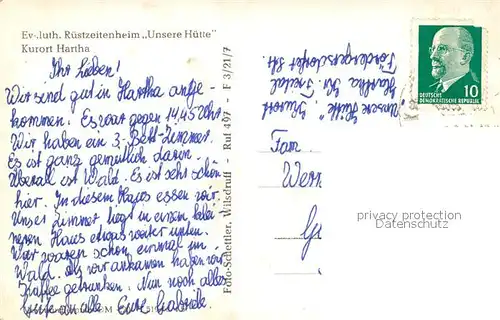 Ev.-luth. Rüstzeitenheim „Unsere Hütte"
Kurort Hartha
Ihr Lieben!
Wir sind gut in Hartha ange-
kommen. Es war gegen 14.45 Uhr.
Wir haben ein 3-Bett-Zimmer.
Es ist ganz gemütlich darin.
Überall ist Wald. Es ist sehr schön
hier. In diesem Haus essen wir.
Unser Zimmer liegt in einem klei-
neren Haus etwas weiter unten.
Wir waren schon einmal im
Wald. Als wir ankamen haben wir
Kaffee getrunken. Nun noch alles
Gute an alle Eure Gabriele
Foto-Schettler, Wilsdruff Ruf 497 - F 3/21/7
"Unsere Hütte", Kurort
Hartha Kr. Freital
DEUTSCHE
DEMOKRATISCHE REPUBLIK
10
Fam.
Wern
privacy protection
Datenschutz